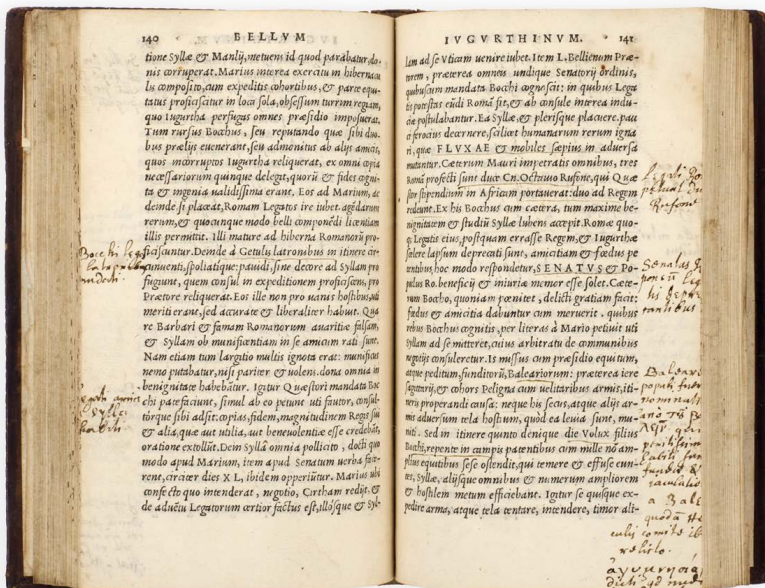 140 BELLVM
tione Syllæ & Manlij, metuens id quod parabatur, do-
nis corruperat. Marius interea exercitu in hibernacu
lis composito, cum expeditis cohortibus, & parte equi-
tatus proficiscitur in loca sola, obsessum turrim regiam,
quo Iugurtha perfugas omnes præsidio imposuerat.
Tum rursus Bocchus, seu reputando quæ sibi duo-
bus prælijs euenerant, seu admonitus ab alijs amicis,
quos incorruptos Iugurtha reliquerat, ex omni copia
necessariorum quinque delegit, quorū & fides cogni-
ta & ingenia ualidissima erant. Eos ad Marium, ac
deinde si placeat, Romam Legatos ire iubet. agēdarum
rerum, & quocunque modo belli componēdi licentiam
illis permittit. Illi mature ad hiberna Romanorū pro-
ficiscuntur. Deinde à Getulis latronibus in itinere cir-
cunuenti, spoliatique: pauidi, sine decore ad Syllam pro
fugiunt, quem consul in expeditionem proficiscens, pro
Prætore reliquerat. Eos ille non pro uanis hostibus, uti
meriti erant, sed accurate & liberaliter habuit. Qua
re Barbari & famam Romanorum auaritiæ falsam,
& Syllam ob munificentiam in se amicum rati sunt.
Nam etiam tum largitio multis ignota erat: munificus
nemo putabatur, nisi pariter & uolens. dona omnia in
benignitate habebātur. Igitur Quæstori mandata Boc
chi patefaciunt, simul ab eo petunt uti fautor, consul-
tórque sibi adsit. copias, fidem, magnitudinem Regis sui
& alia, quæ aut utilia, aut beneuolentiæ esse credebāt,
oratione extollūt. Dein Syllā omnia pollicito, docti quo
modo apud Marium, item apud Senatum uerba face-
rent, circiter dies XL, ibidem opperiūtur. Marius ubi
confecto quo intenderat, negotio, Cirtham redijt, &
de aduētu Legatorum certior factus est, illósque & Syl-
IVGVRTHINVM. 141
lam ad se Vticam uenire iubet. Item L. Bellienum Præ-
torem, præterea omnes undique Senatorij ordinis,
quibuscum mandata Bocchi cognoscit: in quibus Lega
tis potestas eūdi Romā fit, & ab consule interea indu-
ciæ postulabantur. Ea Syllæ & plerisque placuere. pau
ci ferocius decernere, scilicet humanarum rerum igna
ri, quæ FLVXAE & mobiles sæpius in aduersa
mutantur. Cæterum Mauri impetratis omnibus, tres
Romā profecti sunt duce Cn. Octauio Rufone, qui Quæ
stor stipendium in Africam portauerat: duo ad Regem
redeunt. Ex his Bocchus cum cætera, tum maxime be-
nignitatem & studiū Syllæ lubens accepit. Romæ quo-
que Legatis eius, postquam errasse Regem, & Iugurthæ
scelere lapsum deprecati sunt, amicitiam & fœdus pe
tentibus, hoc modo respondetur, SENATVS & Po-
pulus Ro. beneficij & iniuriæ memor esse solet. Cæte-
rum Boccho, quoniam pœnitet, delicti gratiam facit:
fœdus & amicitia dabuntur cum meruerit. quibus
rebus Bocchus cognitis, per literas à Mario petiuit uti
Syllam ad se mitteret, cuius arbitratu de communibus
negotijs consuleretur. Is missus cum præsidio equitum,
atque peditum, funditorū, Baleariorum: præterea iere
sagittarij, & cohors Peligna cum uelitaribus armis, iti-
neris properandi causa: neque his secus, atque alijs ar-
mis aduersum tela hostium, quòd ea leuia sunt, mu-
niti. Sed in itinere quinto denique die Volux filius
Bocchi, repente in campis patentibus cum mille nō am-
plius equitibus sese ostendit, qui temere & effuse eun-
tes, Syllæ, alijsque omnibus & numerum ampliorem
& hostilem metum efficiebant. Igitur se quisque ex-
pedire arma, atque tela tentare, intendere, timor ali-
Rufone
Senatus
a Bale